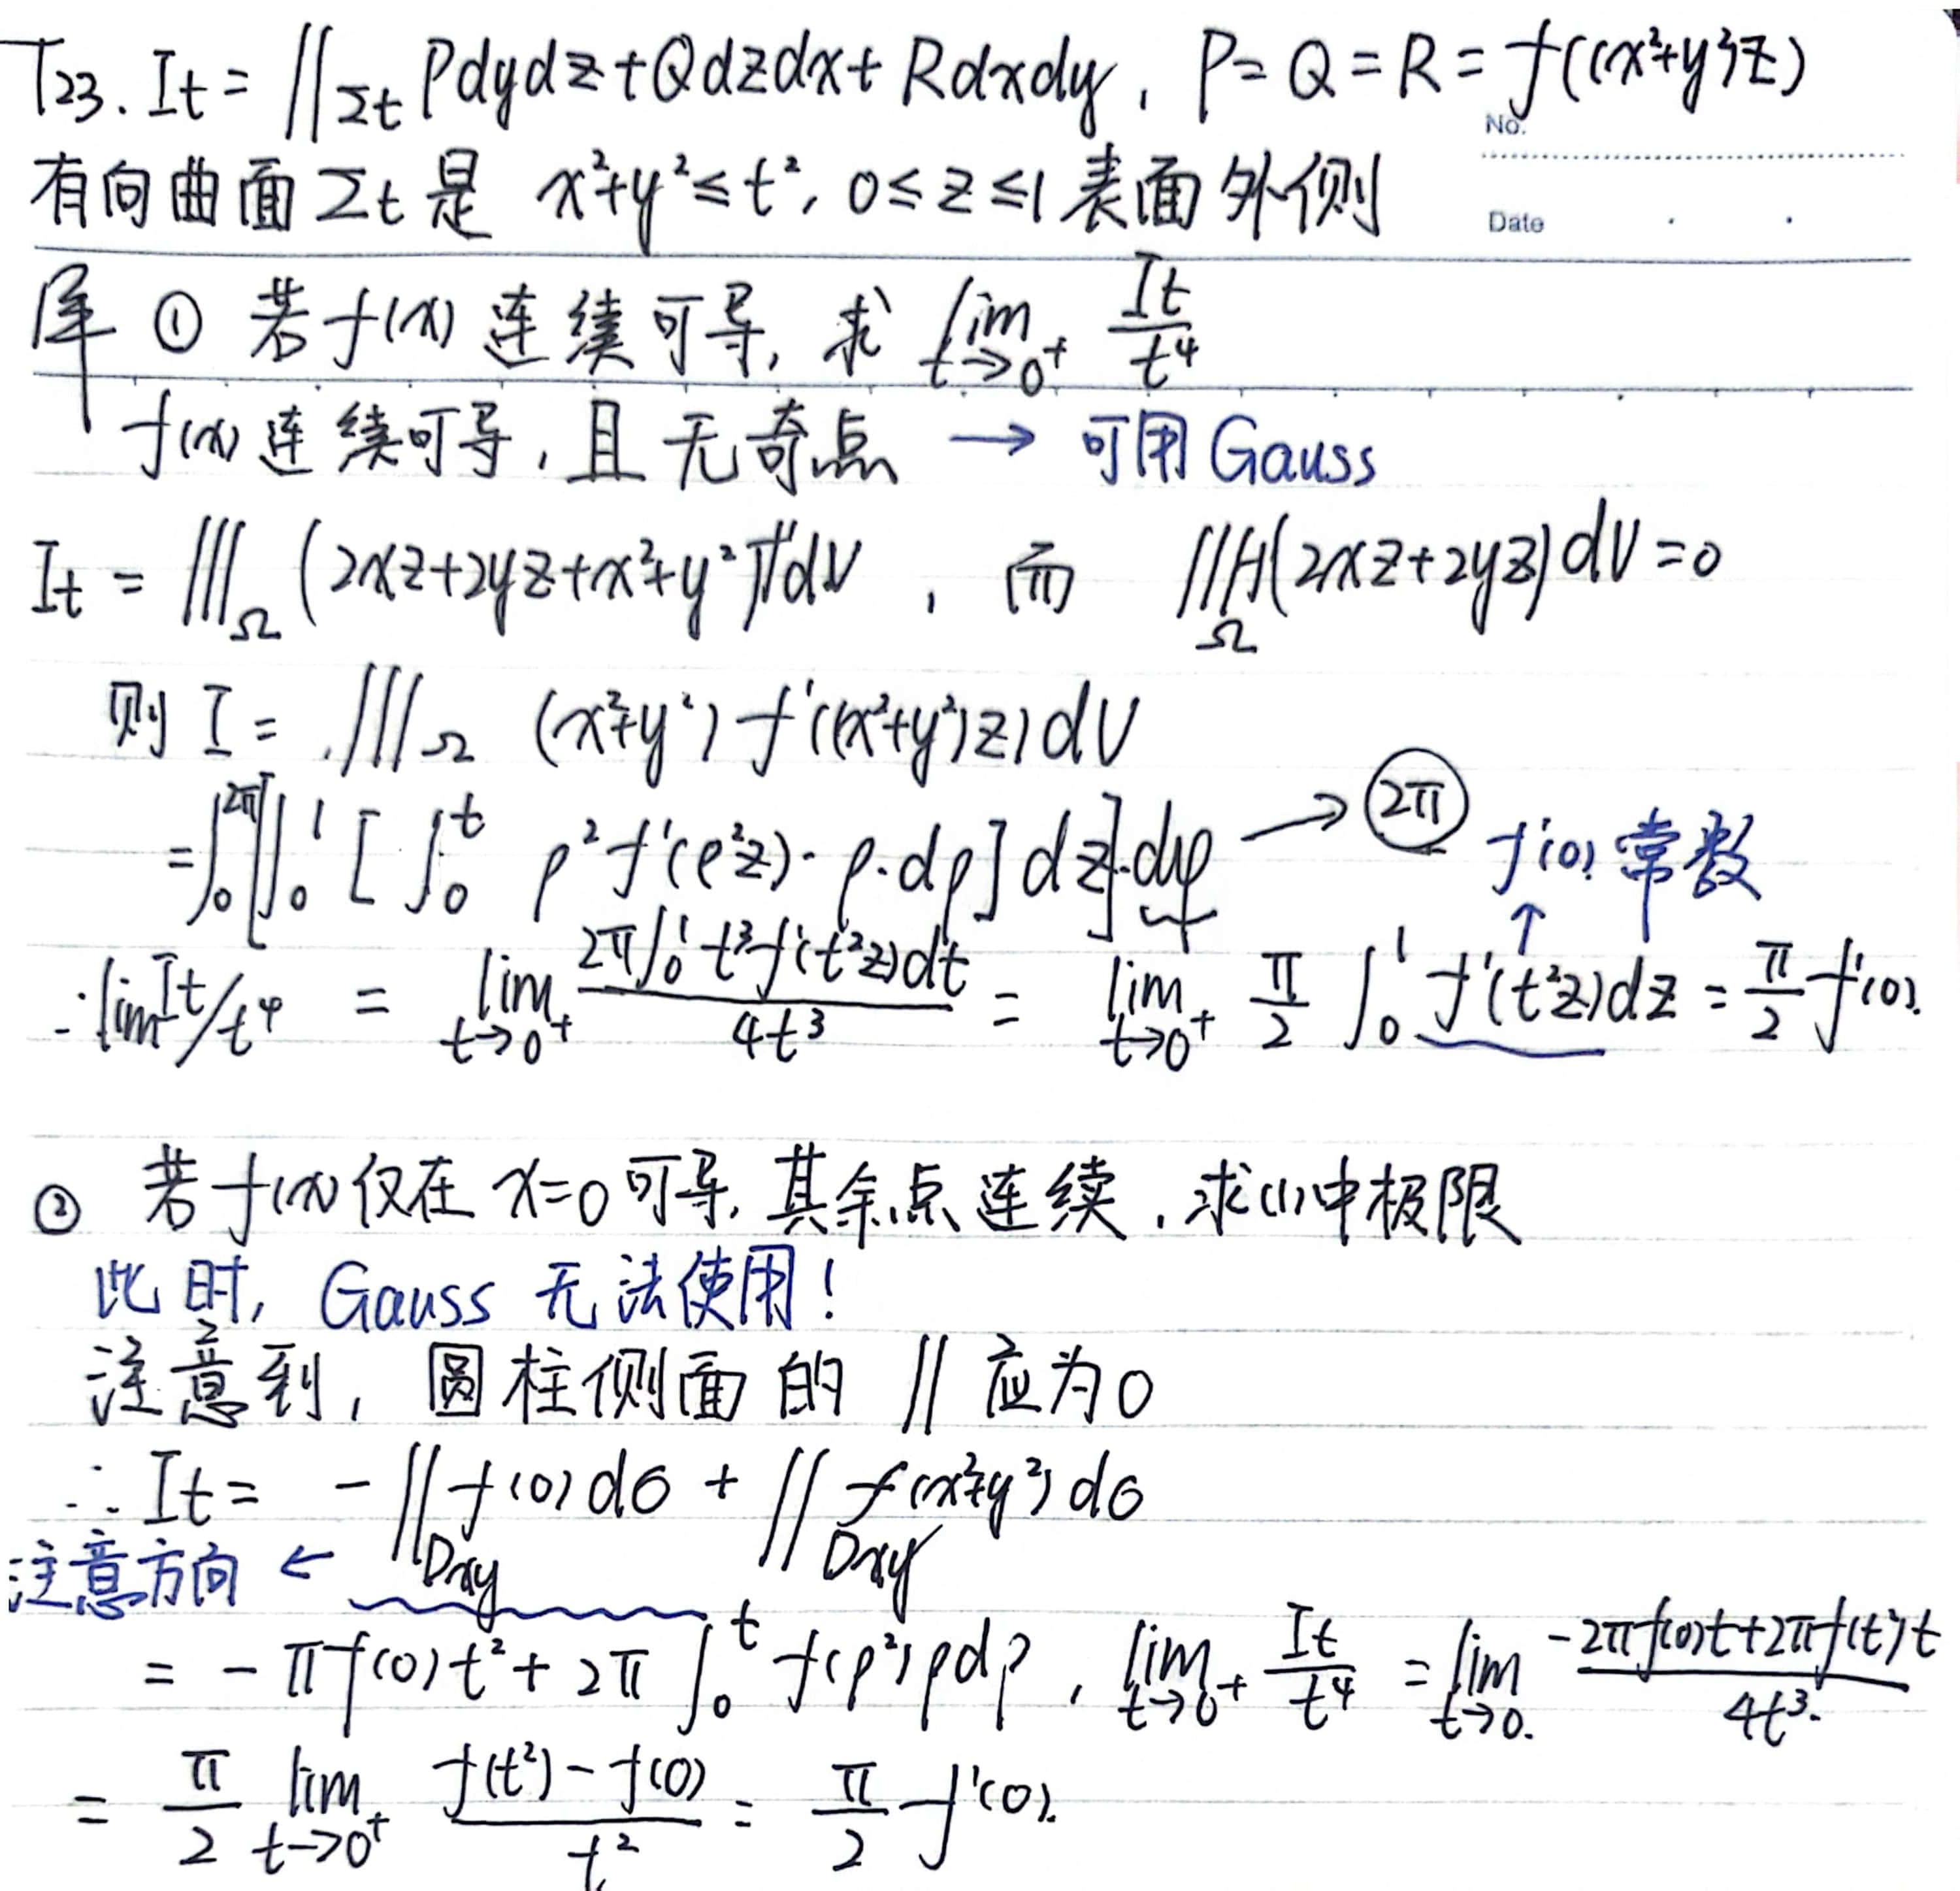 T23. It = ∬Σt Pdydz+Qdzdx+Rdxdy, P=Q=R=f((x²+y²)z)
No.
有向曲面Σt是 x²+y²≤t², 0≤z≤1表面外侧
Date
解 ① 若f(x)连续可导, 求 lim t→0⁺ It/t⁴
f(x)连续可导, 且无奇点 → 可用Gauss
It = ∭Ω (2xz+2yz+x²+y²)f'dV , 而 ∭Ω f'(2xz+2yz)dV=0
则 I = ∭Ω (x²+y²) f'((x²+y²)z)dV
=∫₀^2π[∫₀¹ [∫₀^t ρ²f'(ρ²z)·ρ·dρ]dz]·dφ → 2π
f'(0)常数
↑
∴lim It/t⁴ = lim t→0⁺ 2π∫₀¹t³f'(t²z)dt/4t³ = lim t→0⁺ π/2 ∫₀¹ f'(t²z)dz = π/2 f'(0).
② 若f(x)仅在x=0可导, 其余点连续, 求(1)中极限
此时, Gauss 无法使用!
注意到, 圆柱侧面的∬应为0
∴ It = -∬Dxy f(0)dσ + ∬Dxy f(x²+y²)dσ
注意方向 ←
= -πf(0)t²+2π∫₀^t f(ρ²)ρdρ, lim t→0⁺ It/t⁴ = lim t→0. -2πf(0)t+2πf(t²)t/4t³.
= π/2 lim t→0⁺ f(t²)-f(0)/t² = π/2 f'(0).